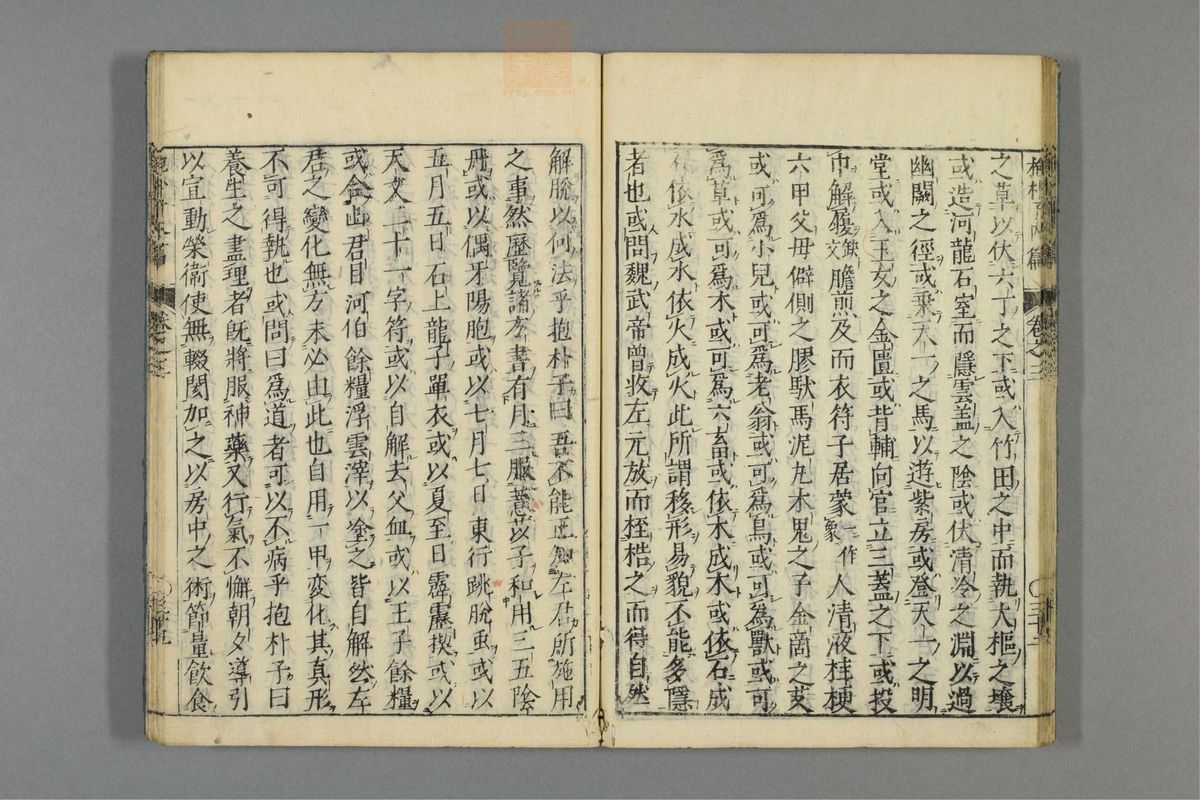 之草以伏六丁之下或入竹田之中而執大樞之壤
或造河龍石室而隱雲蓋之陰或伏清冷之淵以過
幽闕之徑或乘天一之馬以遊紫房或登天一之明
堂或入玉女之金匱或背輔向官立三蓋之下或投
巾解履闕文膽煎及而衣符子居蒙一作象人清液桂梗
六甲父母僻側之膠駮馬泥丸木鬼之子金商之艾
或可爲小兒或可爲老翁或可爲鳥或可爲獸或可
爲草或可爲木或可爲六畜或依木成木或依石成
石依水成水依火成火此所謂移形易貌不能多隱
者也或問魏武帝曾收左元放而桎梏之而得自然
解脫以何法乎抱朴子曰吾不能正知左君所施用
之事然歷覽諸方書有月三服薏苡子和用三五陰
丹或以偶牙陽胞或以七月七日東行跳脫虫或以
五月五日石上龍子單衣或以夏至日霹靂楔或以
天文二十一字符或以自解去父血或以王子餘糧
或合山君目河伯餘糧浮雲滓以塗之皆自解然左
君之變化無方未必由此也自用六甲変化其真形
不可得執也或問曰爲道者可以不病乎抱朴子曰
養生之盡理者既將服神藥又行氣不懈朝夕導引
以宣動榮衛使無輟閡加之以房中之術節量飲食